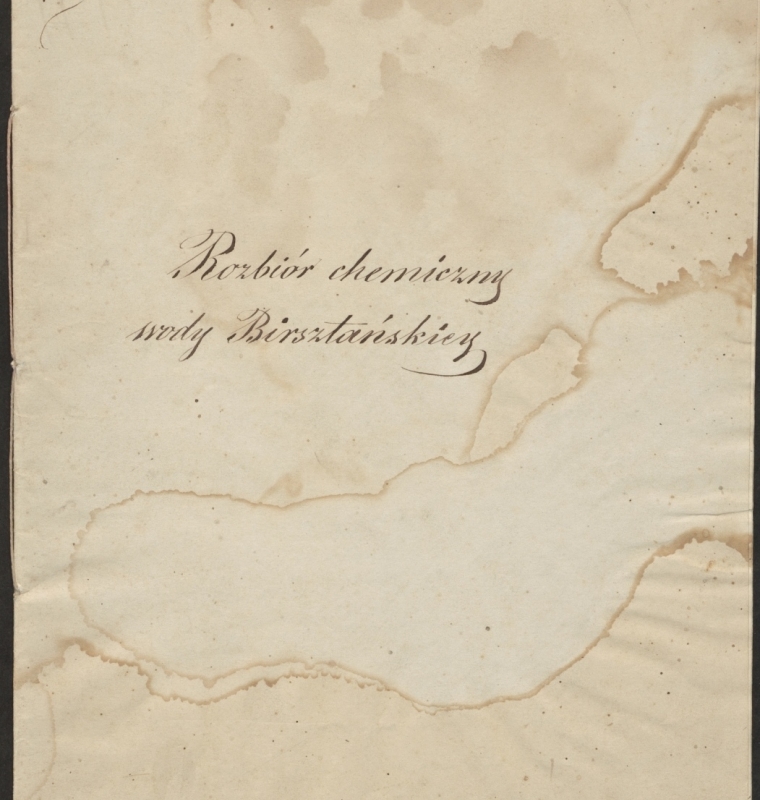 Rozbiór chemiczny
wody Birsztańskiey